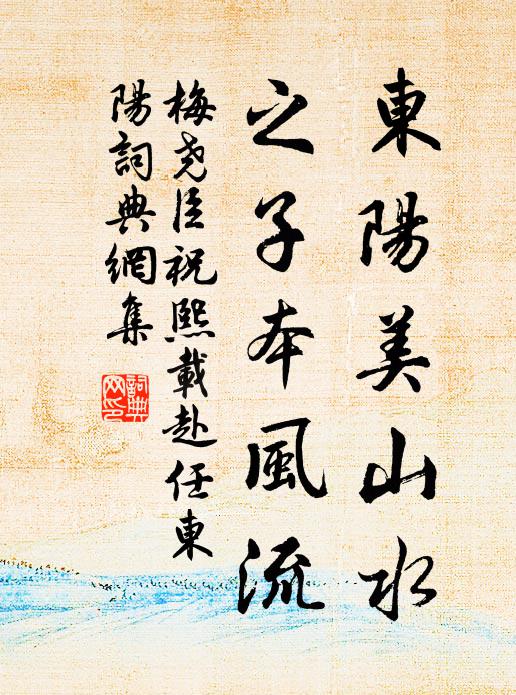 東陽美山水
之子本風流
梅尧臣祝熙載赴任東
陽詞典網集
詞典
网印